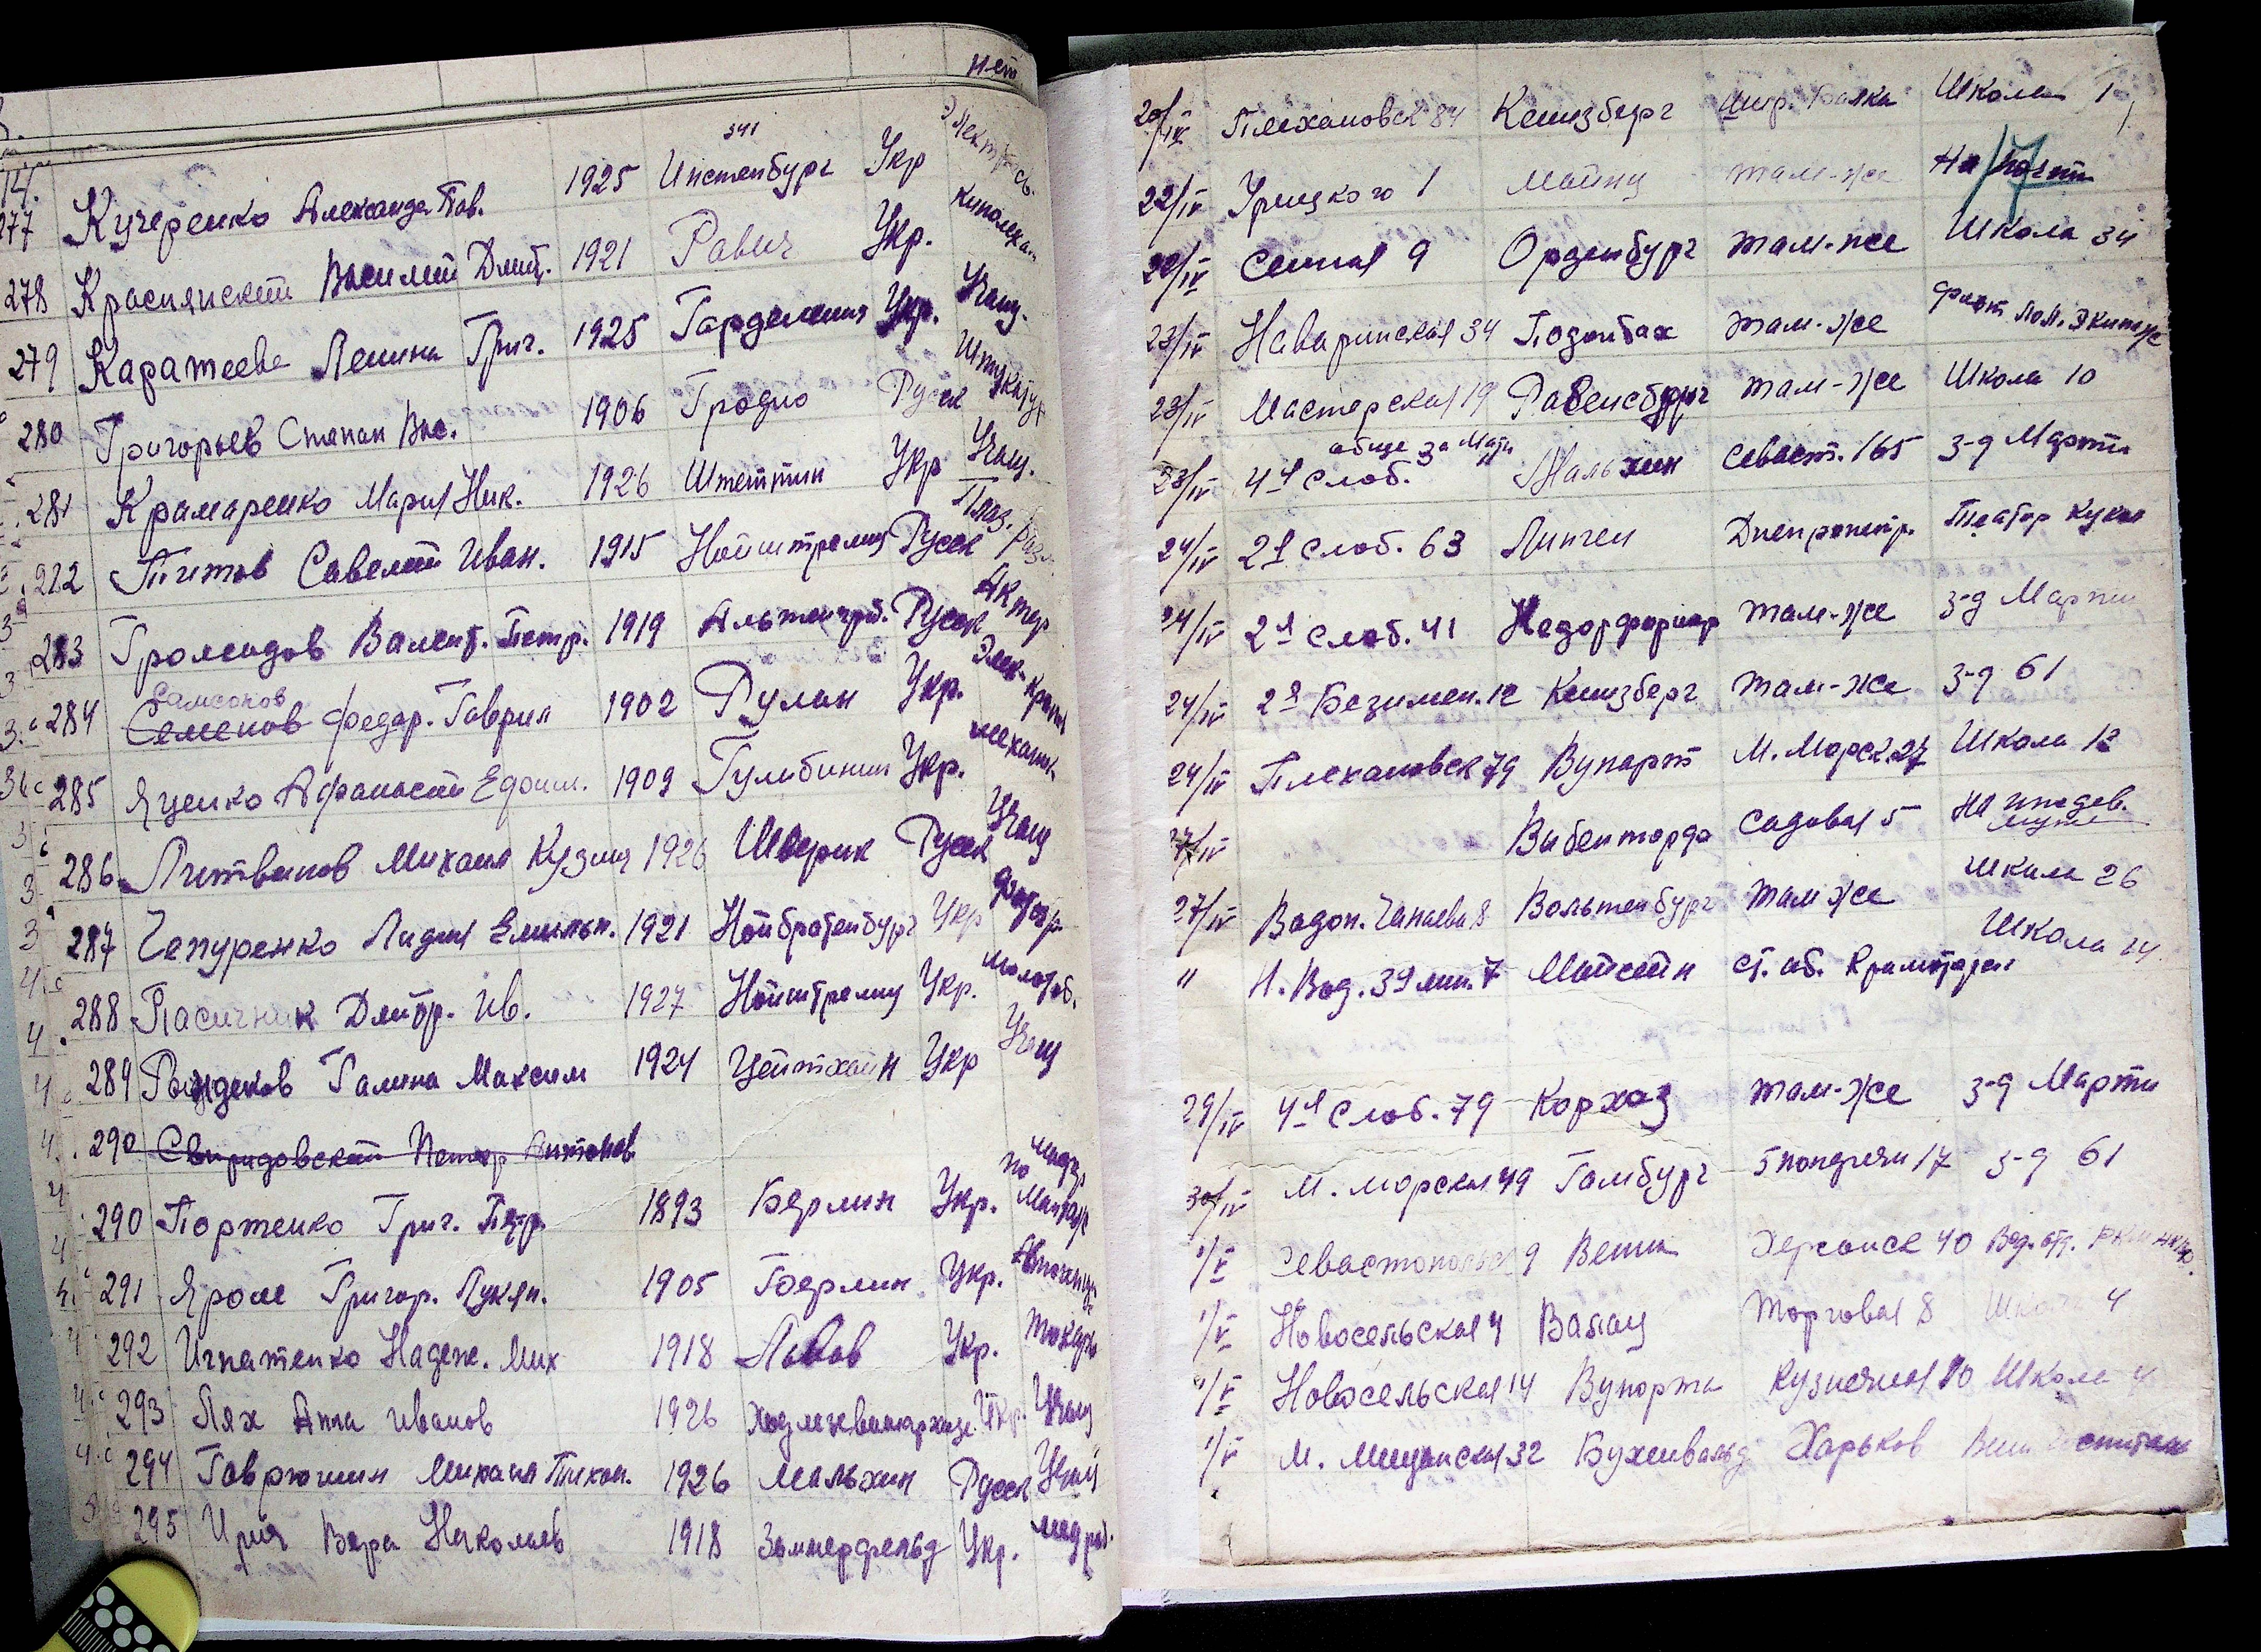 нет
14.
341
277 Кучеренко Александ. Пав. 1925 Инстенбург Укр
278 Краснянский Василий Дмит. 1921 Равич Укр. киномех.
279 Каратеева Ленина Григ. 1925 Гарделения Укр. Учащ.
280 Григорьев Степан Вас. 1906 Гродно Русск Штукатур
281 Крамаренко Мария Ник. 1926 Штеттин Укр Учащ.
222 Титов Савелий Иван. 1915 Нойштрелиц Русск
283 Громадов Валент. Петр. 1919 Альтенгроб. Русск Актер
Самсонов
284 Семенов Федор. Гаврил 1902 Рулан Укр.
285 Яценко Афанасий Едоким. 1909 Гумбинин Укр. механик
286 Литвинов Михаил Кузмич 1926 Шверик Русск Учащ
287 Чепуренко Лидия Емельн. 1921 Нойбратенбург Укр
288 Пасичник Дмитр. Ив. 1927 Нойштрелиц Укр. молотоб.
289 Рындеков Галина Максим 1924 Цейтхайн Укр Учащ
290 Свиридовский Петр Антонов
290 Порженко Григ. Петр. 1893 Берлин Укр. по Монтаж
291 Яром Григор. Лукян. 1905 Берлин Укр.
292 Игнатенко Надеж. Мих 1918 Львов Укр. токарь
293 Лях Анна Иванов 1926 Укр. Учащ
294 Гаврюшин Михаил Тихон. 1926 Мальхин Русск Учащ
295 Ирич Вера Николаев 1918 Зоммерфельд Укр. медраб.
20/IV Плехановск 84 Кенизберг Школа 1
22/IV Урицкого 1 Майнц там-же
17
22/IV Сенная 9 Орденбург там-же Школа 34
23/IV Наваринская 34 Подонбах там-же флот пол. Экипаж
23/IV Мастерская 19 Равенсбург там-же Школа 10
обще за Мати
23/IV 4я Слоб. Мальхин Севаст. 165 З-д Марти
24/IV 2я Слоб. 63 Линген Днепропетр. Театр Кукол
24/IV 2я Слоб. 41 там-же З-д Марти
24/IV 2я Безимен. 12 Кенизберг там-же З-д 61
24/IV Плехановск 79 Вупарт М. Морск 27 Школа 12
27/IV " Вибенторда Садовая 5 на
27/IV Водоп. Чапаева 8 Вольтенбург там же Школа 26
" Н. Вод. 39 лин. 7 Майсейн Школа 14
29/IV 4я Слоб. 79 Корхоз там-же З-д Марти
30/IV М. Морская 49 Гамбург 17 З-д 61
1/V Севастопольск 9 Вешн Херсонск 40
1/V Новосельская 4 Валац Торговая 8 Школа 4
1/V Новосельская 14 Вупорта Кузнечная 10 Школа 4
1/V М. Мещанская 32 Бухенвальд Харьков